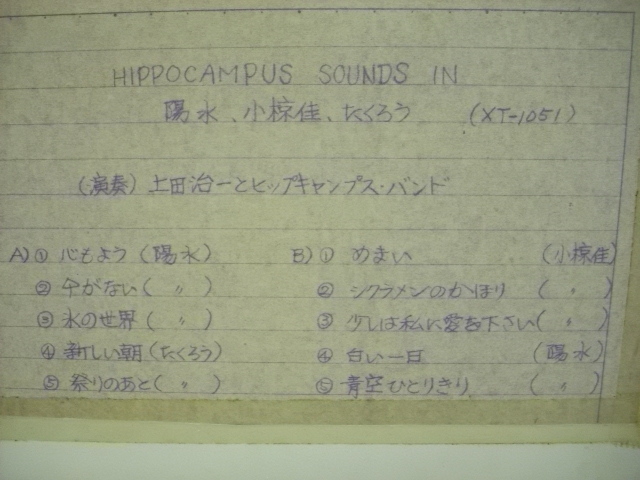 HIPPOCAMPUS SOUNDS IN
陽水、小椋佳、たくろう (XT-1051)
(演奏) 上田治一とヒップキャンプス・バンド
A) ① 心もよう (陽水) B) ① めまい (小椋佳)
② 傘がない ( 〃 ) ② シクラメンのかほり ( 〃 )
③ 氷の世界 ( 〃 ) ③ 少しは私に愛を下さい ( 〃 )
④ 新しい朝 (たくろう) ④ 白い一日 (陽水)
⑤ 祭りのあと ( 〃 ) ⑤ 青空ひとりきり ( 〃 )